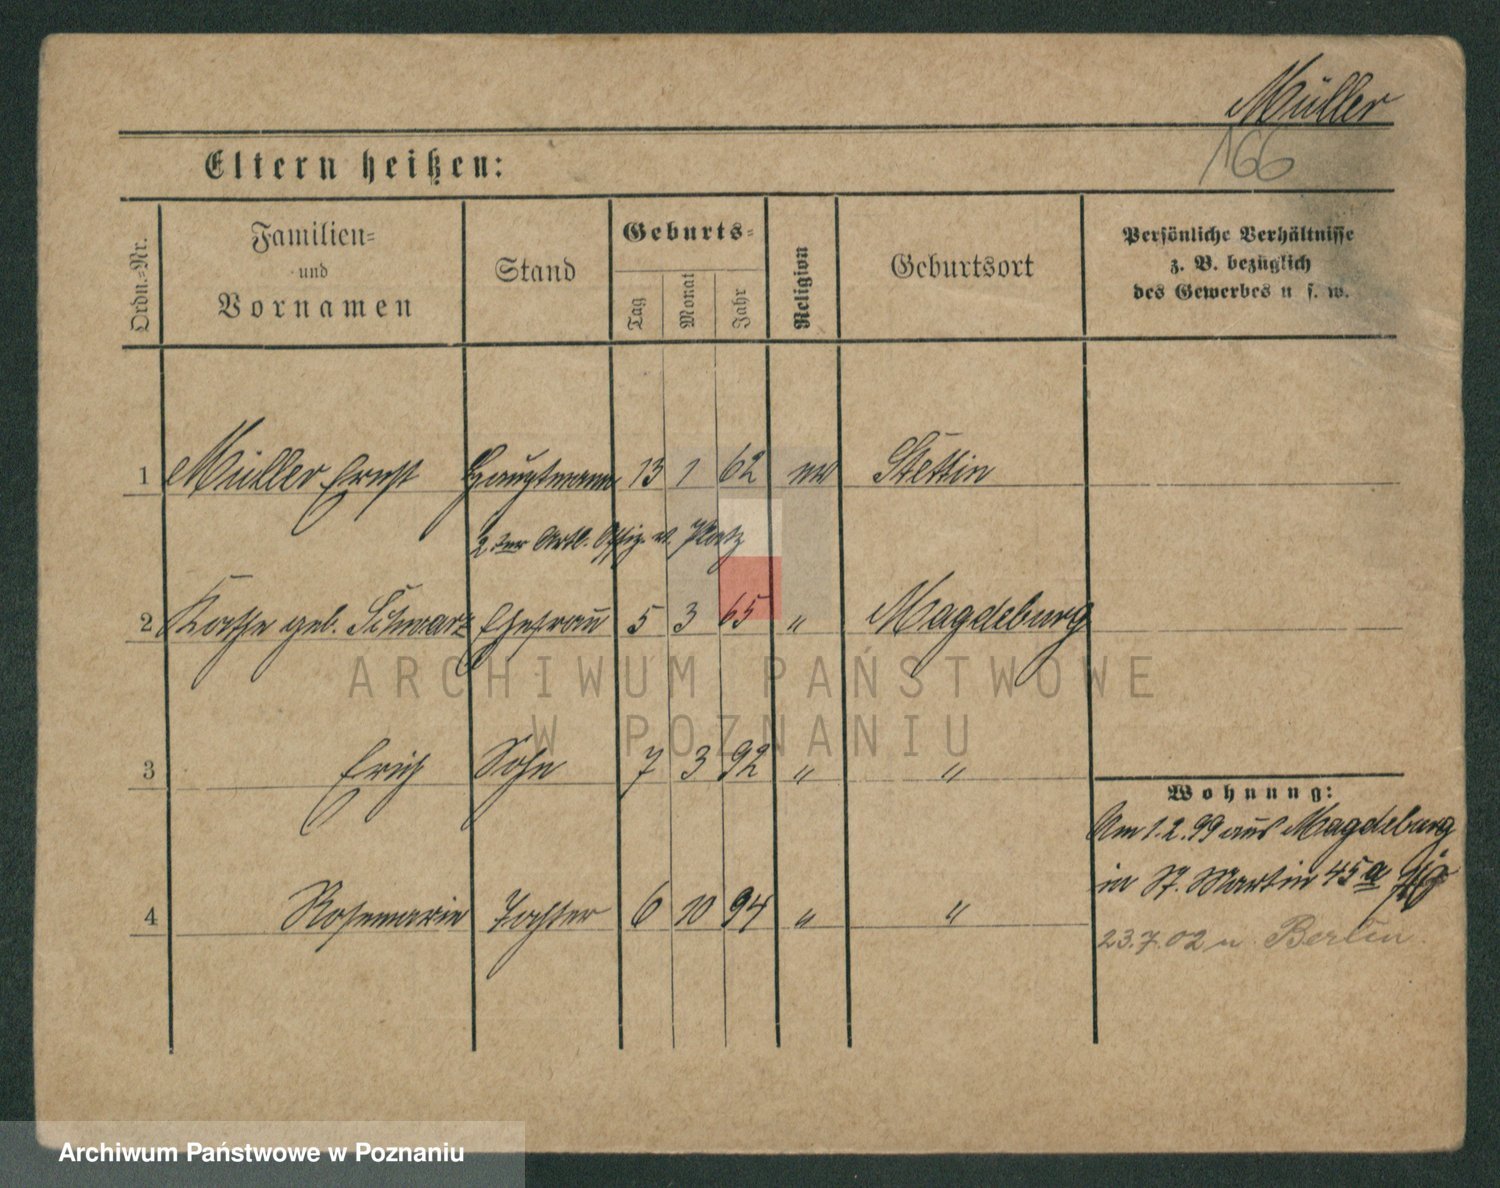 Müller
166
Eltern heißen:
Ordn.-Nr.
Familien-
und
Vornamen
Stand
Geburts-
Tag
Monat
Jahr
Religion
Geburtsort
Persönliche Verhältnisse
z. B. bezüglich
des Gewerbes u. s. w.
1 Müller Ernst Hauptmann 13 1 62 Stettin
2ter Artl. Offiz. v. Platz
2 Käthe geb. Schwarz Ehefrau 5 3 65 " Magdeburg
3 Erich Sohn 7 3 92 " "
Wohnung:
Am 1.2.99 aus Magdeburg
in St. Martin 45a
4 Rosemarie Tochter 6 10 94 " "
23.7.02 n. Berlin.
ARCHIWUM PAŃSTWOWE
W POZNANIU
Archiwum Państwowe w Poznaniu